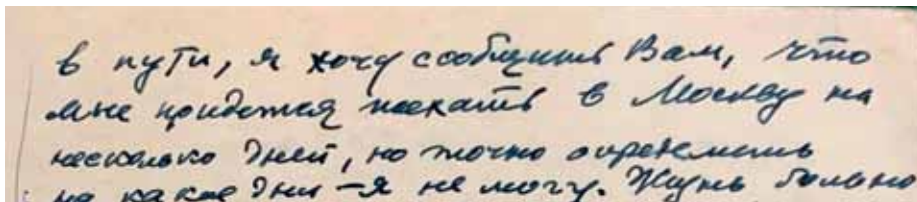 в пути, я хочу сообщить Вам, что
мне придется поехать в Москву на
несколько дней, но точно определить
на какие дни – я не могу. Жизнь больно